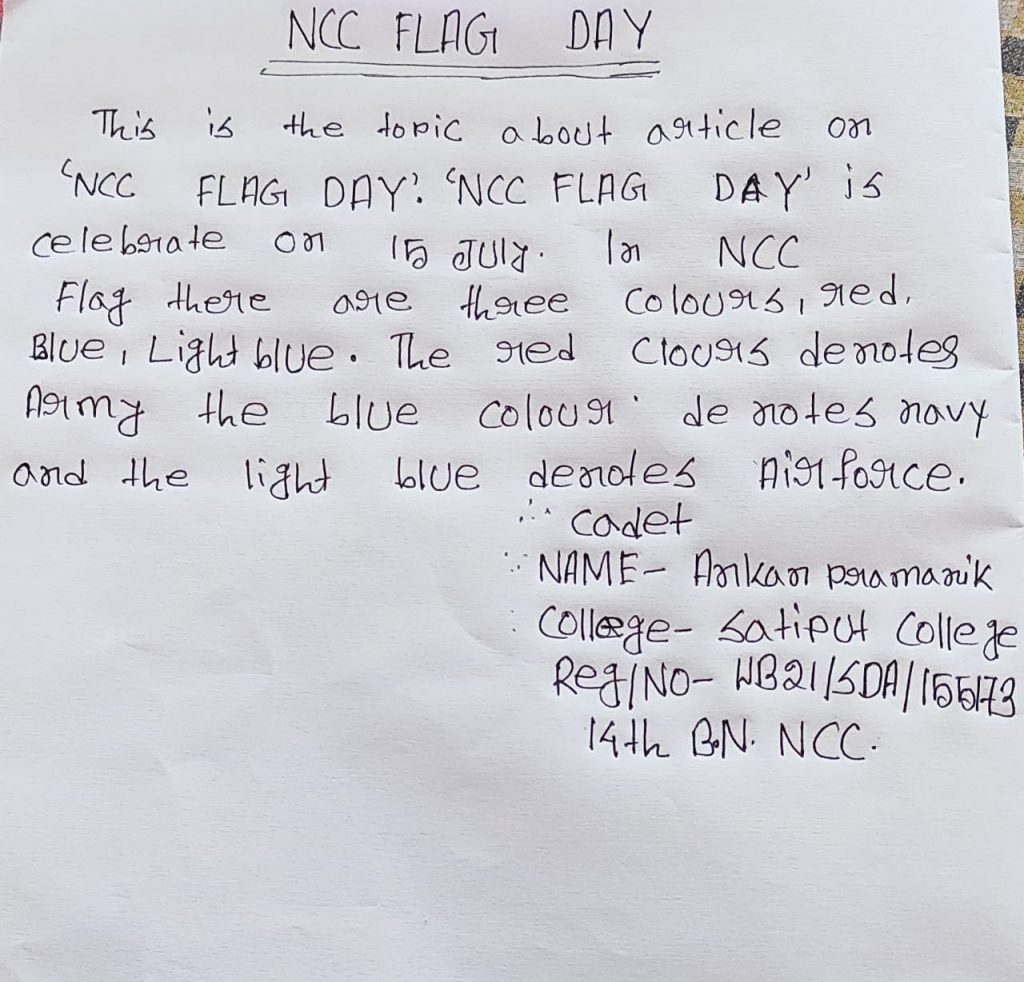 NCC FLAG DAY
This is the topic about article on
'NCC FLAG DAY'. 'NCC FLAG DAY' is
celebrate on 15 JUly. In NCC
Flag there are three colours, red,
Blue, Light blue. The red Clours denotes
Army the blue colour denotes navy
and the light blue denotes Airforce.
∴ cadet
∴ NAME- Ankan pramanik
: College- Satiput College
Reg/NO- WB21/SDA/155173
14th B.N. NCC.